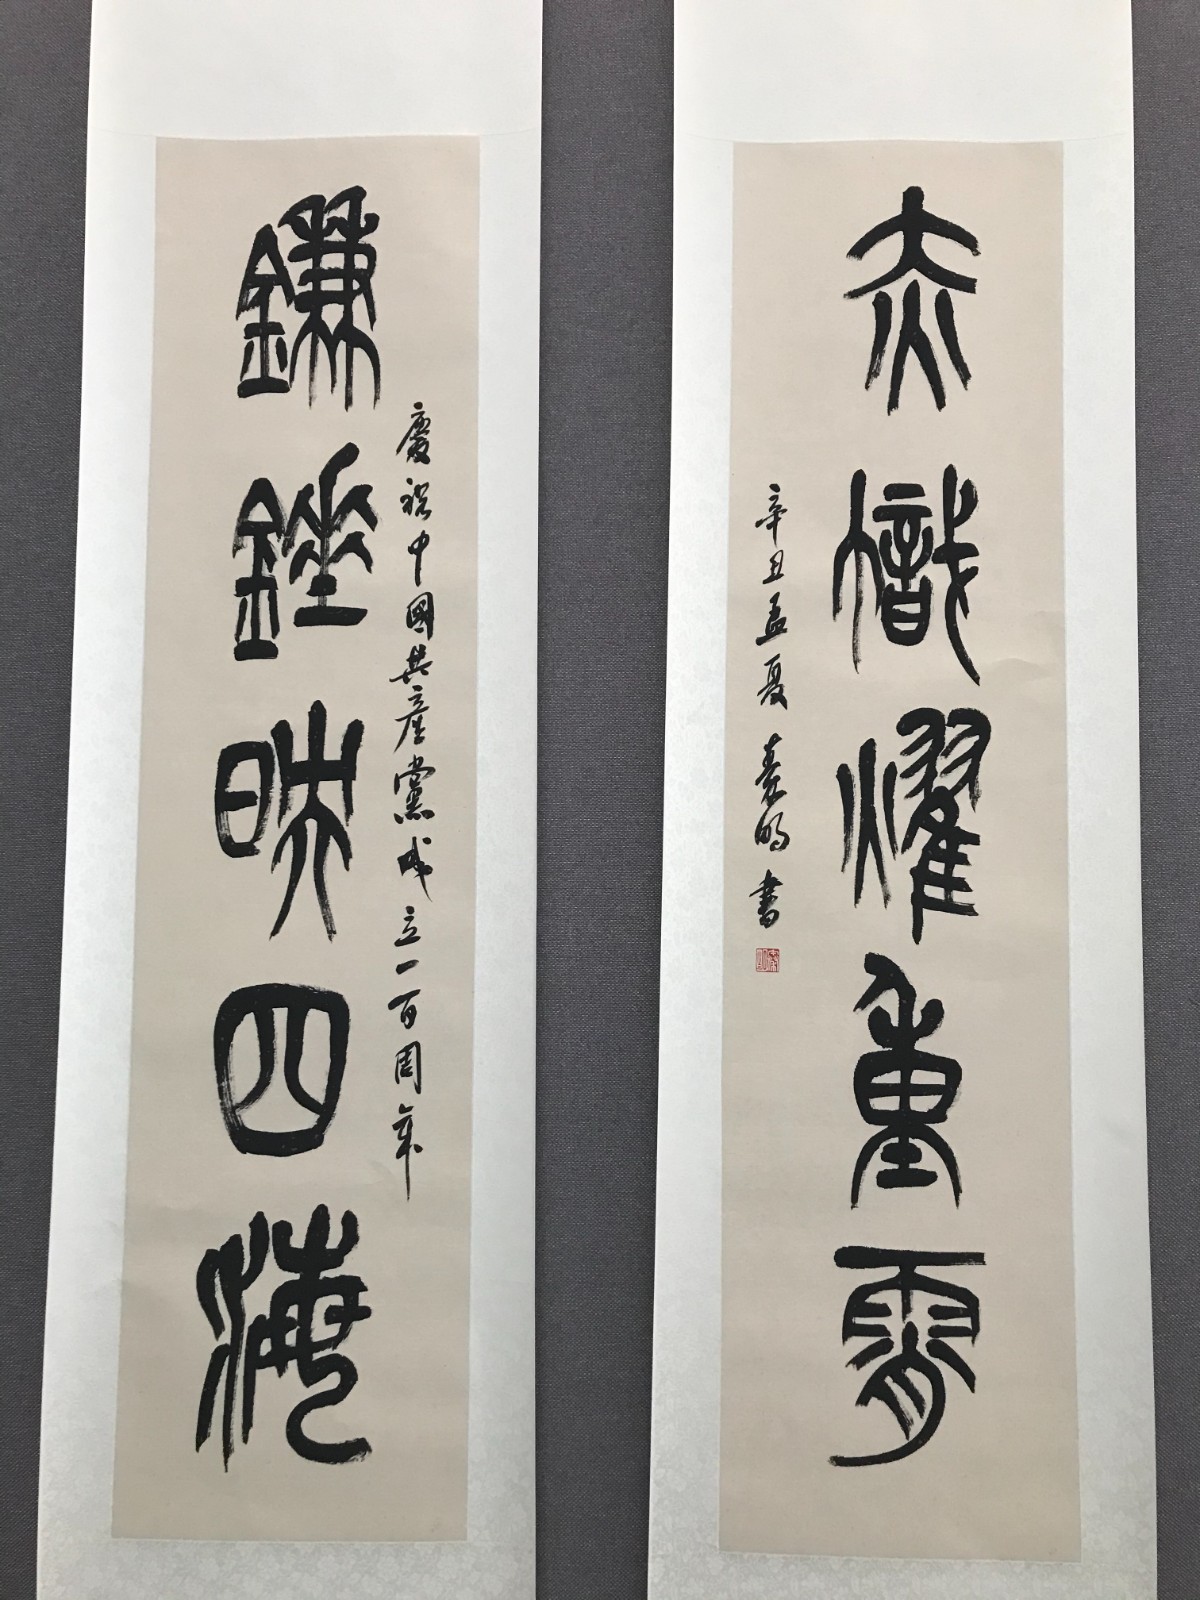 慶祝中國共產黨成立一百周年
鐮錘映四海
赤幟燿重霄
辛丑孟夏 明書